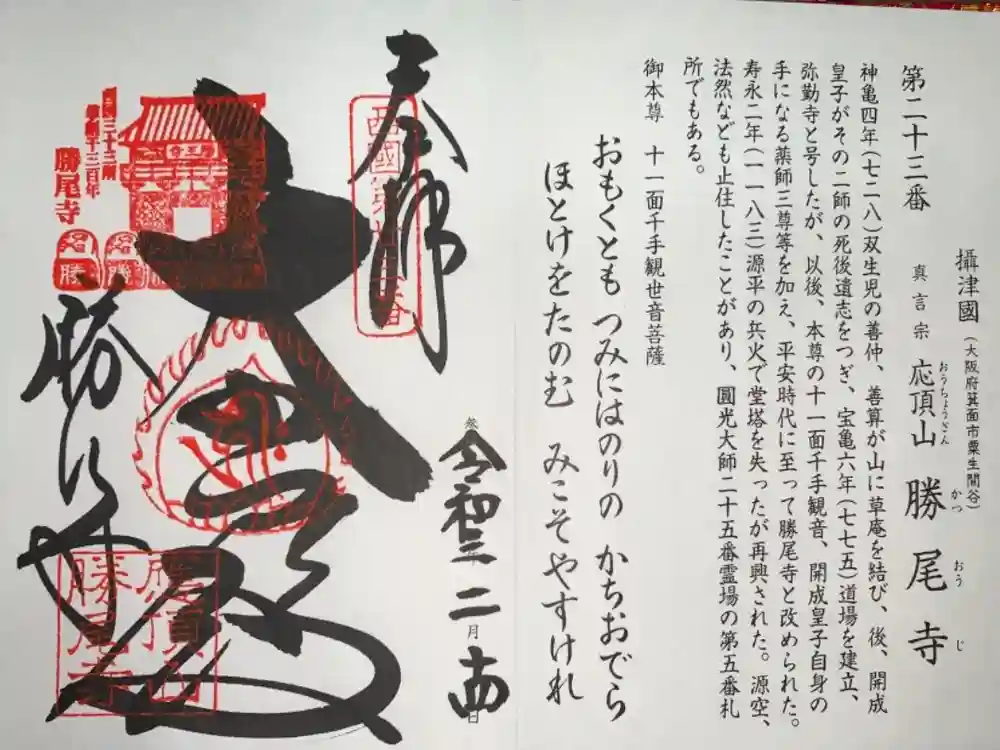 攝津國（大阪府箕面市粟生間谷）
第二十三番　真言宗　応頂山　勝尾寺
おうちょうざん　かつおうじ
神亀四年（七二八）双生児の善仲、善算が山に草庵を結び、後、開成
皇子がその二師の死後遺志をつぎ、宝亀六年（七七五）道場を建立、
弥勒寺と号したが、以後、本尊の十一面千手観音、開成皇子自身の
手になる薬師三尊等を加え、平安時代に至って勝尾寺と改められた。
寿永二年（一一八三）源平の兵火で堂塔を失ったが再興された。源空、
法然なども止住したことがあり、圓光大師二十五番霊場の第五番札
所でもある。
御本尊　十一面千手観世音菩薩
おもくとも　つみにはのりの　かちおでら
ほとけをたのむ　みこそやすけれ
奉拝
西國第廿三番
参
令和二年
二月廿四日
大悲殿
勝尾寺
勝尾寺
應頂山
勝尾寺